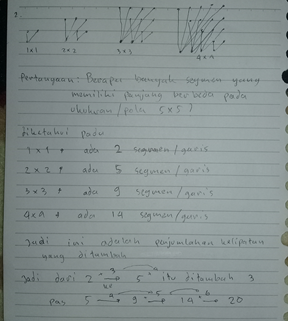 2.
1x1 2x2 3x3 4x4
Pertanyaan : Berapa banyak segmen yang
memiliki panjang berbeda pada
ukuran/pola 5x5?
Diketahui pada
1x1 ada 2 segmen/garis
2x2 ada 5 segmen/garis
3x3 ada 9 segmen/garis
4x4 ada 14 segmen/garis
Jadi ini adalah penjumlahan kelipatan
yang ditambah
Jadi dari 2 3 5 itu ditambah 3
5 4 9 5 14 6 20